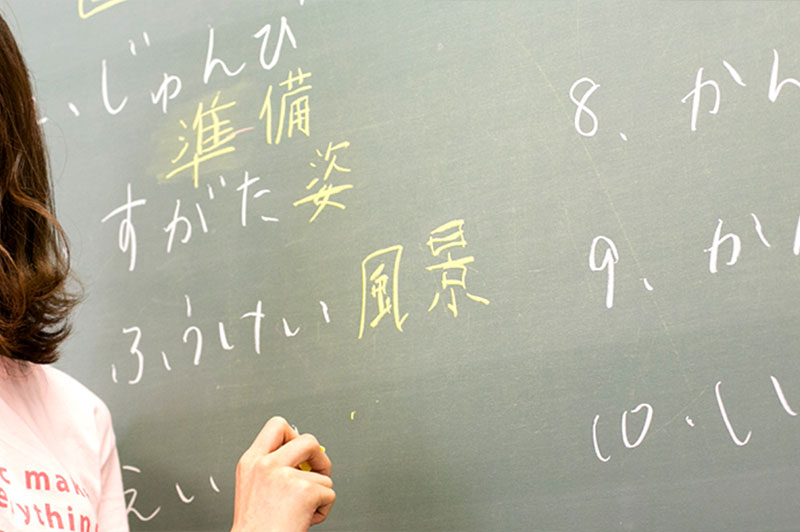 じゅんび
準備
すがた 姿
ふうけい 風景
えい
8、かん
9、かん
10、い
mak
ything